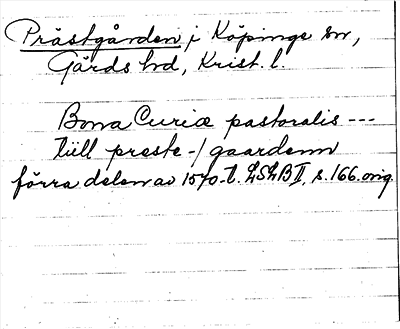 Prästgården i Köpinge sn,
Gärds hd, Krist. l.
Bona Curiæ pastoralis ---
tiill preste-/gaardenn
förra delen av 1570-t. LSLB II, s. 166. orig.